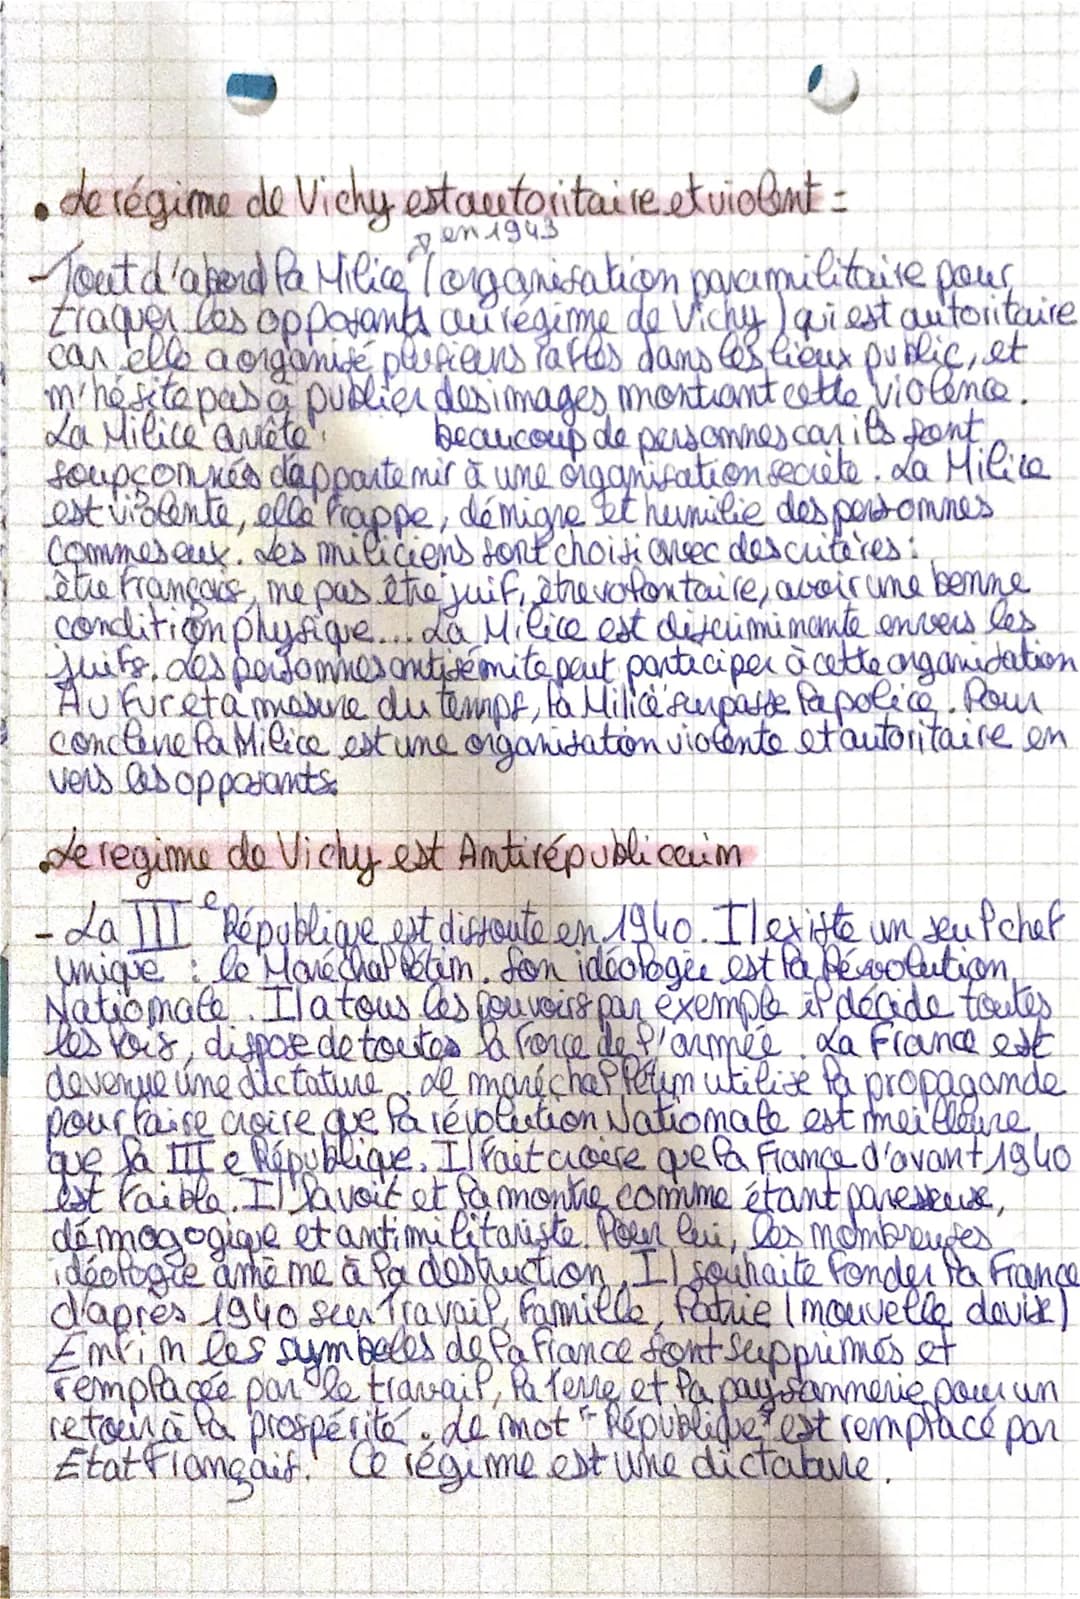 • Le régime de Vichy est autoritaire et violent =
en 1943
- Tout d'abord la Milice (organisation paramilitaire pour
traquer les opposants au régime de Vichy) qui est autoritaire
car elle a organisé plusieurs rafles dans les lieux public, et
n'hésite pas à publier des images montrant cette violence.
La Milice arrête beaucoup de personnes car ils sont
soupçonnés d'appartenir à une organisation secrète. La Milice
est violente, elle frappe, dénigre et humilie des personnes
commes eux. Les miliciens sont choisi avec des critères :
être Français, ne pas être juif, être volontaire, avoir une bonne
condition physique... La Milice est discriminante envers les
juifs. des personnes antisémite peut participer à cette organisation
Au fur et a mesure du temps, la Milice surpasse la police. Pour
conclure la Milice est une organisation violente et autoritaire en
vers les opposants.
• Le regime de Vichy est Antirépublicain
- La IIIe République est dissoute en 1940. Il existe un seul chef
unique : le Maréchal Pétin. Son idéologie est la Révolution
Nationale. Il a tous les pouvoirs par exemple il décide toutes
les lois, dispose de toutes la force de l'armée. La France est
devenue une dictature. Le maréchal Pétin utilise la propagande
pour faire croire que la révolution Nationale est meilleure
que la III e République. Il fait croire que la France d'avant 1940
est faible. Il la voit et la montre comme étant paresseuse,
démagogique et antimilitariste. Pour lui, les nombreuses
idéologie amène à la destruction. Il souhaite fonder la France
d'après 1940 sur Travail, Famille, Patrie (nouvelle devise)
Enfin les symboles de la France sont supprimés et
remplacée par le travail, la terre et la paysannerie pour un
retour à la prospérité. Le mot "République" est remplacé par
État Français. Ce régime est une dictature.